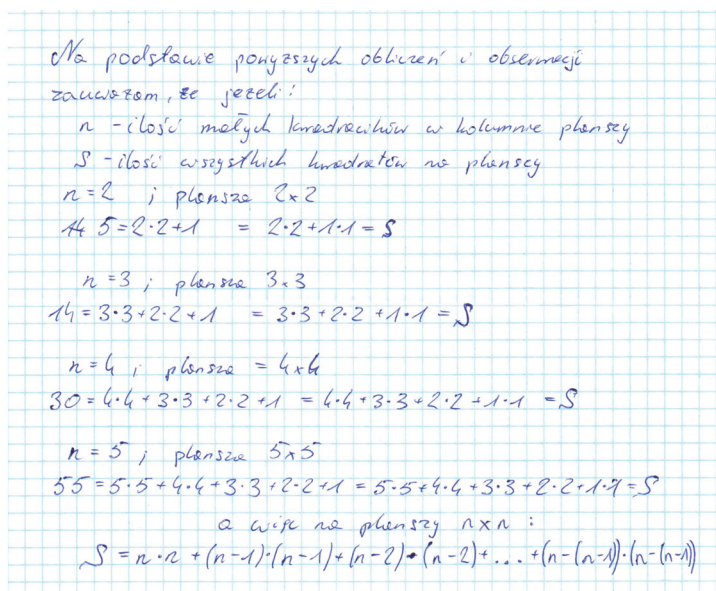 Na podstawie powyższych obliczeń i obserwacji
zauważam, że jeżeli:
n - ilość małych kwadracików w kolumnie planszy
S - ilość wszystkich kwadratów na planszy
n=2 ; plansza 2×2
5=2·2+1 = 2·2+1·1=S
n=3 ; plansza 3×3
14=3·3+2·2+1 = 3·3+2·2+1·1=S
n=4 ; plansza = 4×4
30=4·4+3·3+2·2+1 = 4·4+3·3+2·2+1·1 =S
n=5 ; plansza 5×5
55=5·5+4·4+3·3+2·2+1 =5·5+4·4+3·3+2·2+1·1=S
a więc na planszy n×n :
S=n·n+(n-1)·(n-1)+(n-2)·(n-2)+...+(n-(n-1))·(n-(n-1))